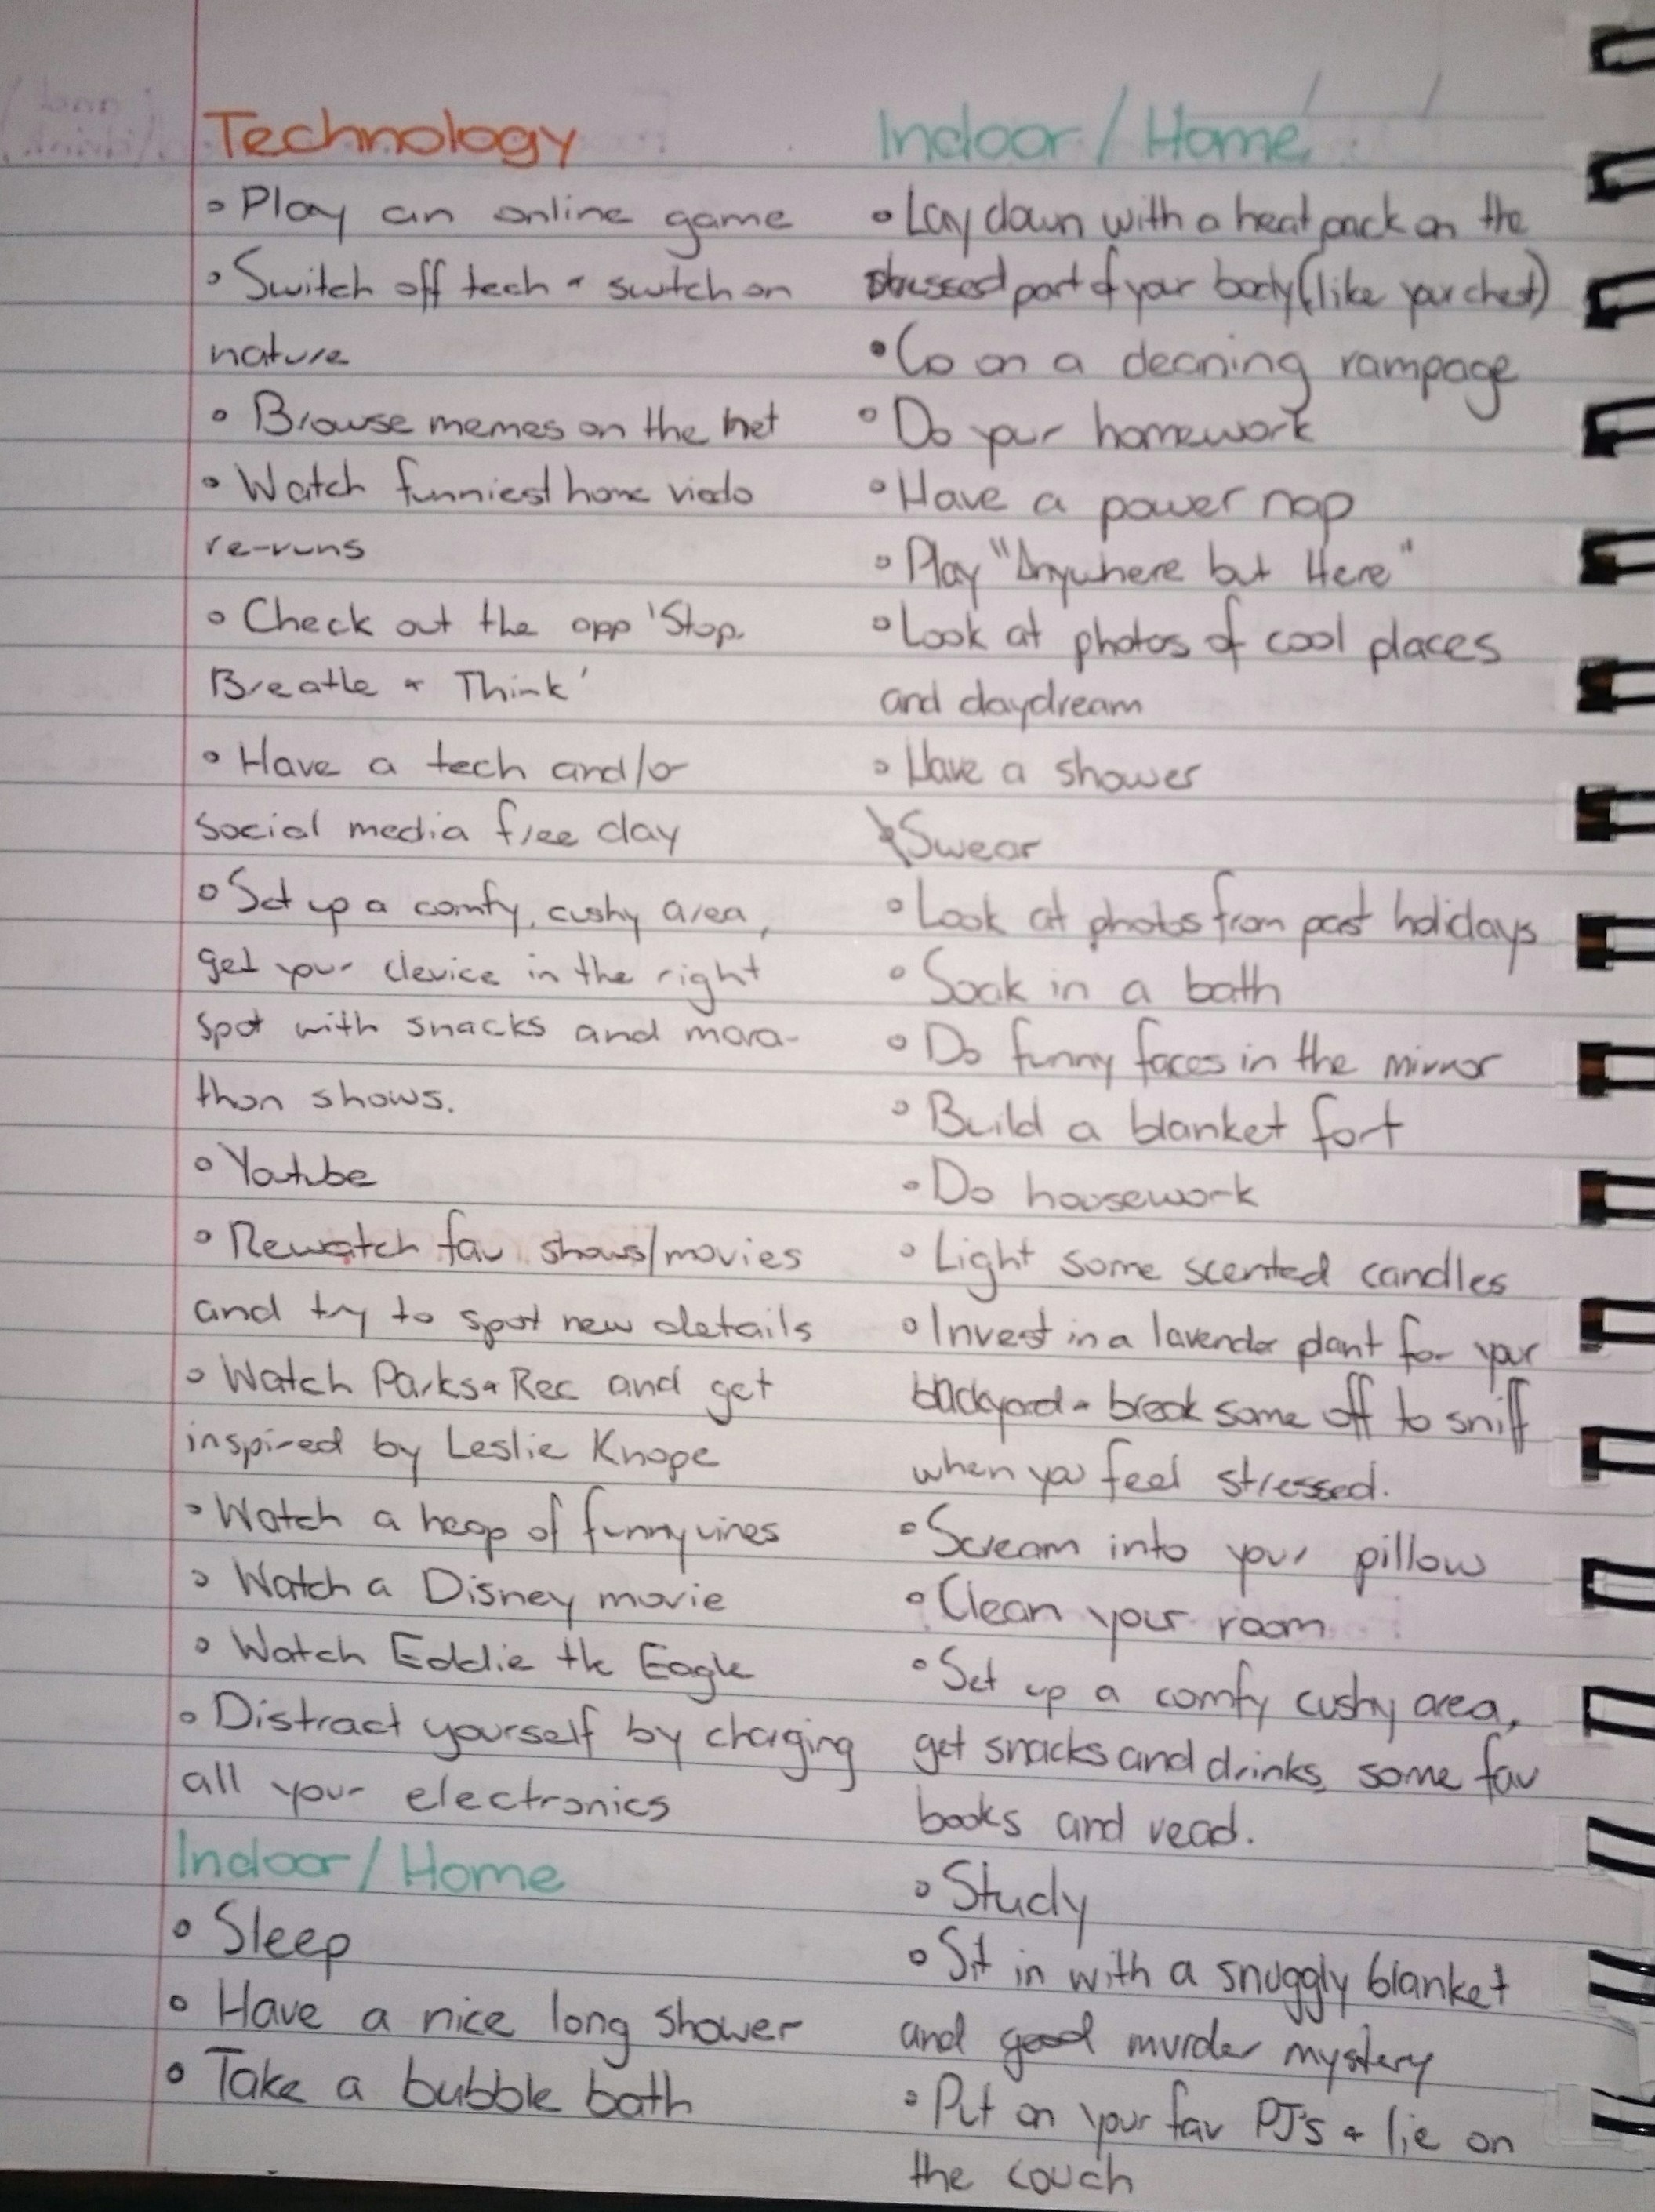 Technology
• Play an online game
• Switch off tech + switch on
nature
• Browse memes on the net
• Watch funniest home viedo
re-runs
• Check out the app 'Stop.
Breathe + Think'
• Have a tech and/or
social media free day
• Set up a comfy, cushy area,
get your device in the right
spot with snacks and mara-
thon shows.
• Youtube
• Rewatch fav shows/movies
and try to spot new details
• Watch Parks + Rec and get
inspired by Leslie Knope
• Watch a heap of funny vines
• Watch a Disney movie
• Watch Eddie the Eagle
• Distract yourself by charging
all your electronics
Indoor / Home
• Sleep
• Have a nice long shower
• Take a bubble bath
Indoor / Home
• Lay down with a heat pack on the
stressed part of your body (like your chest)
• Go on a cleaning rampage
• Do your homework
• Have a power nap
• Play "Anywhere but Here"
• Look at photos of cool places
and daydream
• Have a shower
Swear
• Look at photos from past holidays
• Soak in a bath
• Do funny faces in the mirror
• Build a blanket fort
• Do housework
• Light some scented candles
• Invest in a lavender plant for your
backyard + break some off to sniff
when you feel stressed.
• Scream into your pillow
• Clean your room
• Set up a comfy cushy area,
get snacks and drinks, some fav
books and read.
• Study
• Sit in with a snuggly blanket
and good murder mystery
• Put on your fav PJ's + lie on
the couch